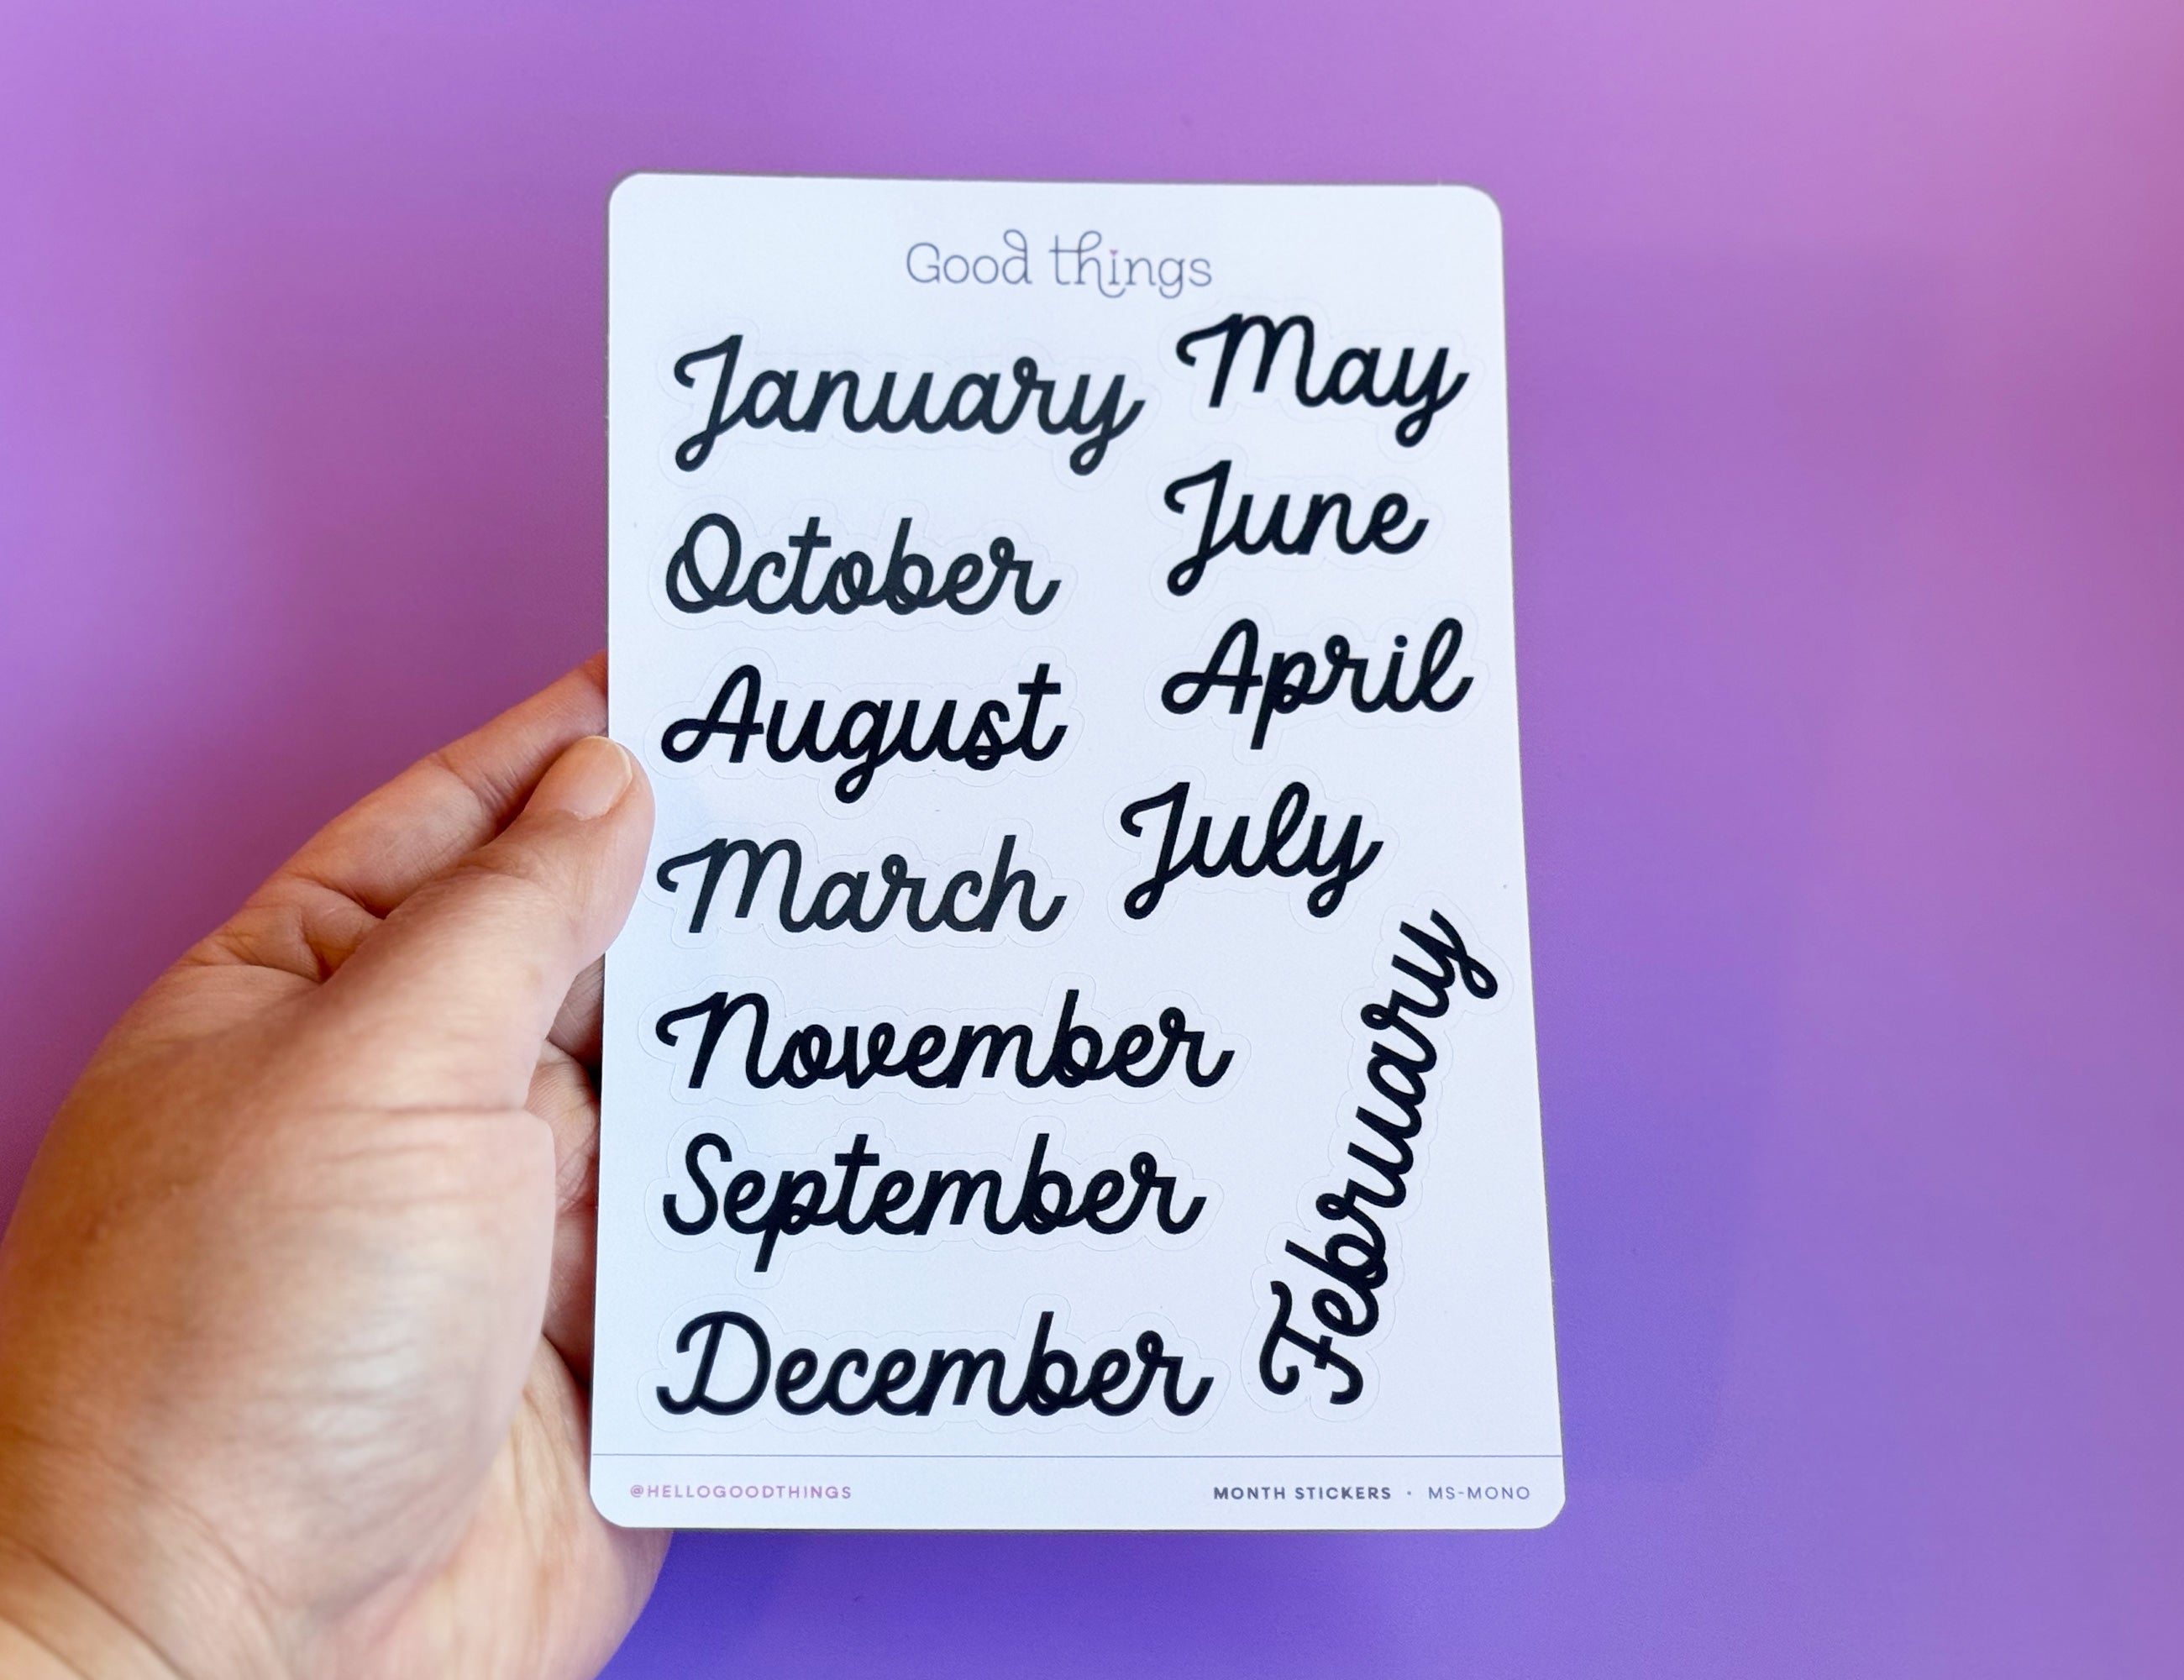 Good things
January
May
June
October
April
August
July
March
February
November
September
December
@HELLOGOODTHINGS
MONTH STICKERS • MS-MONO